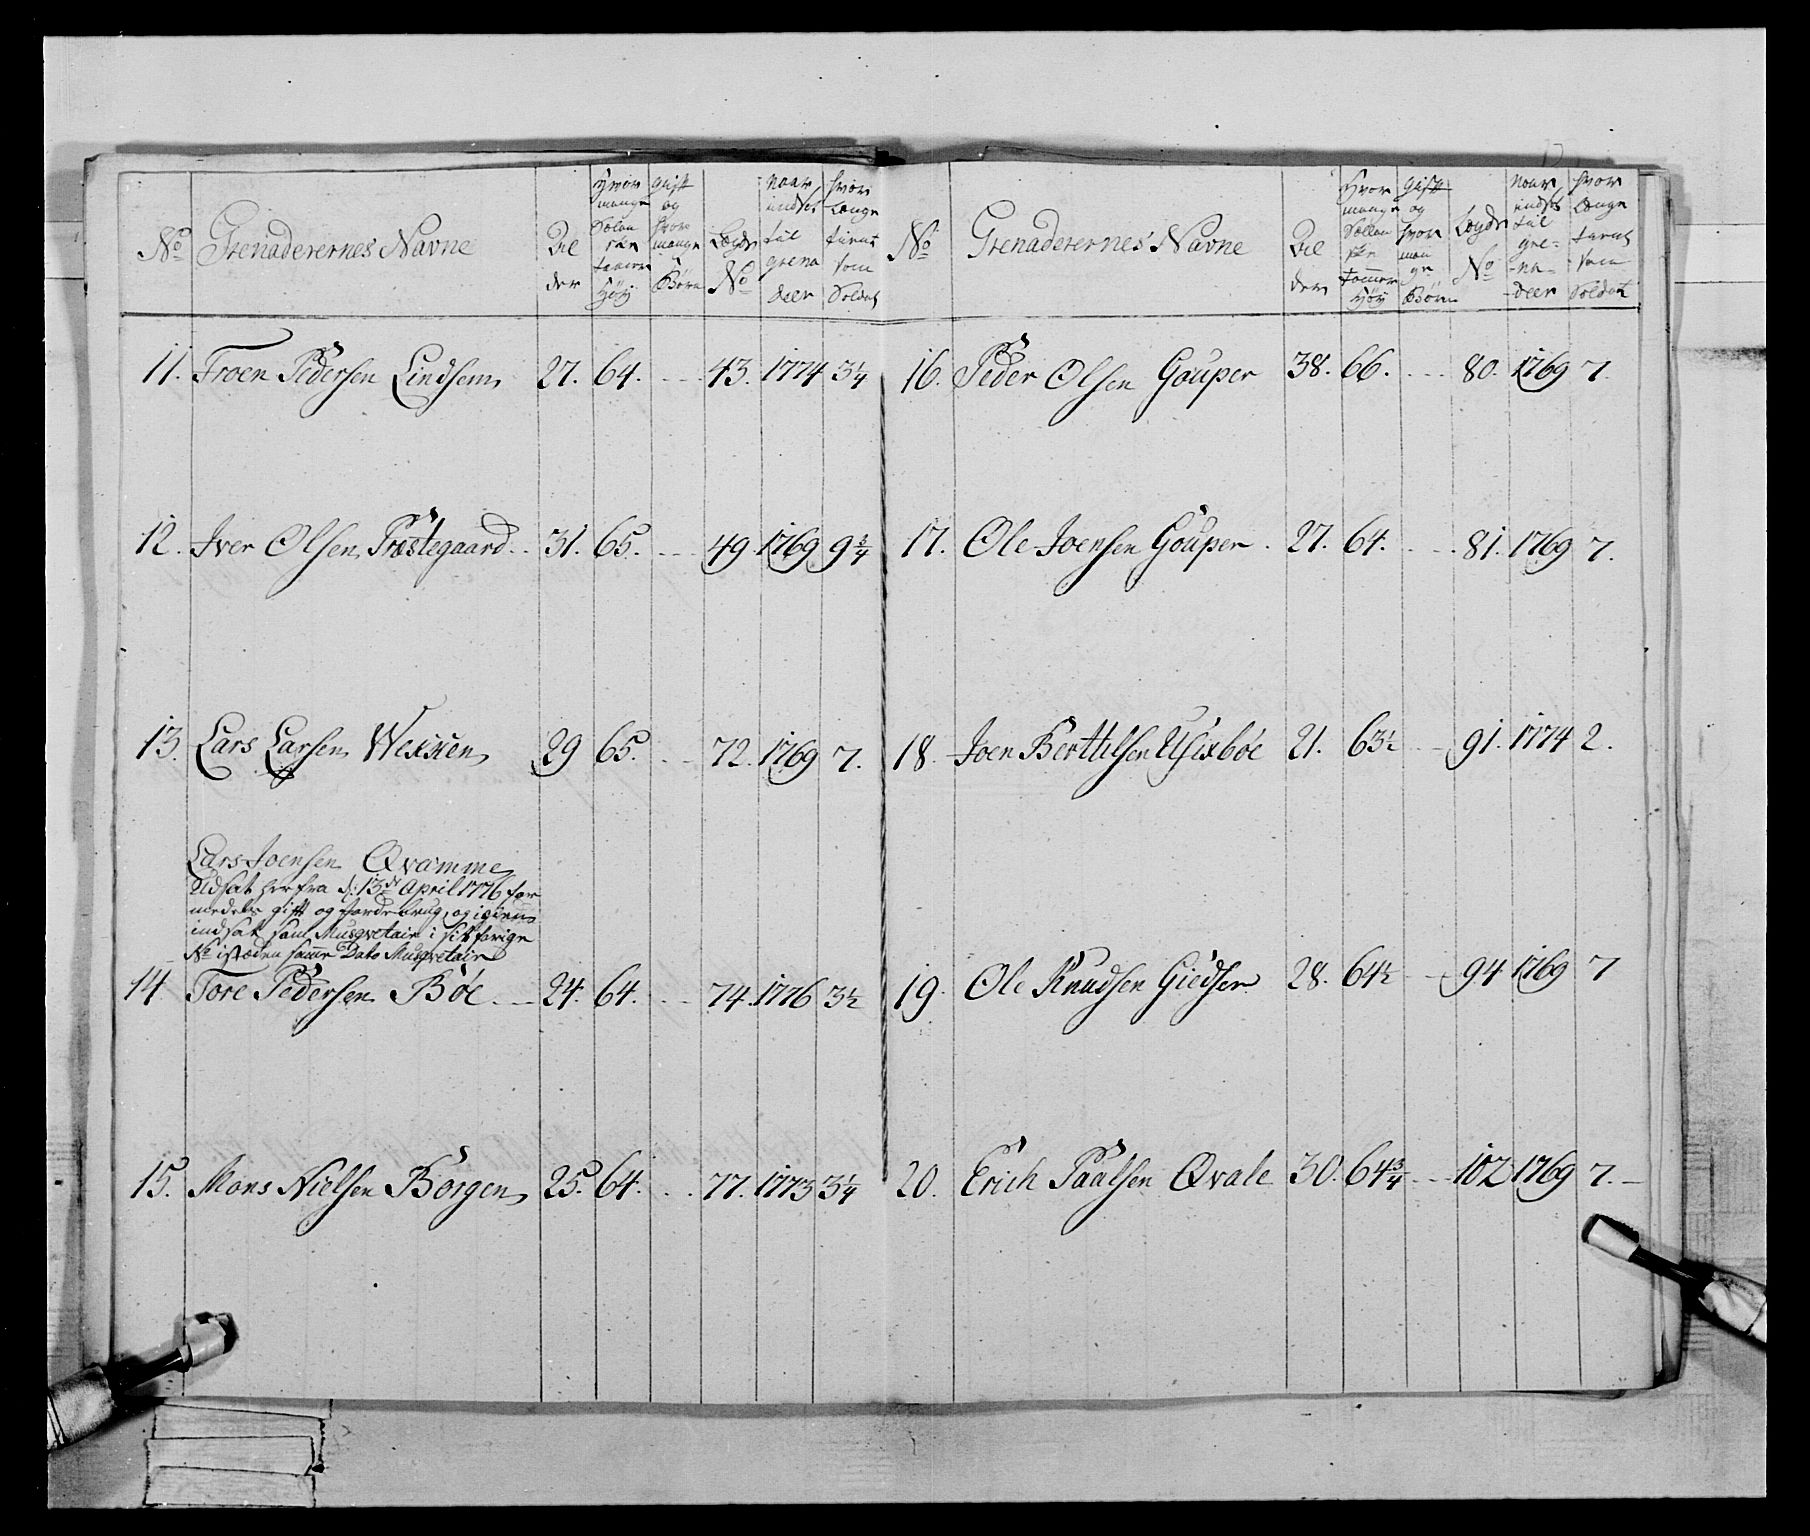 No Grenaderernes Navne Al der Hvor mange Sælan ske tomer Høy gift og hvor mange Børn Lægds No Naar indsat til grena deer hvor længe tient som Soldat
11. Troen Pedersen Lindsem 27. 64. 43. 1774 3 1/4
12. Iver Olsen Præstegaard 31. 65. 49. 1769 9 3/4
13. Lars Larsen Wexsen 29 65. 72. 1769 7.
Lars Joensen Qvamme
Udsat herfra d: 13de April 1776 for
medelst gift og jordebrug, og igien
indsat som Musqvetair i sit forige
No istæden samme Dato Musqvetair
14. Tore Pedersen Bøe 24. 64. 74. 1776 3 1/2
15. Mons Nielsen Borgen 25. 64. 77. 1773 3 1/4
No Grenaderernes Navne Al der Hvor mange Sællan ske tommer Høy gift og hvor man ge Børn Lægds No Naar indsat til gre- na- deer hvor længe tient som Soldat
16. Peder Olsen Gouper 38. 66. 80. 1769 7.
17. Ole Joensen Gouper 27. 64. 81. 1769 7.
18. Joen Berthelsen 21. 63 1/2 91. 1774 2.
19. Ole Knudsen Giedsen 28. 64 1/2 94 1769 7
20. Erich Paalsen Qvale 30. 64 3/4 102 1769 7.